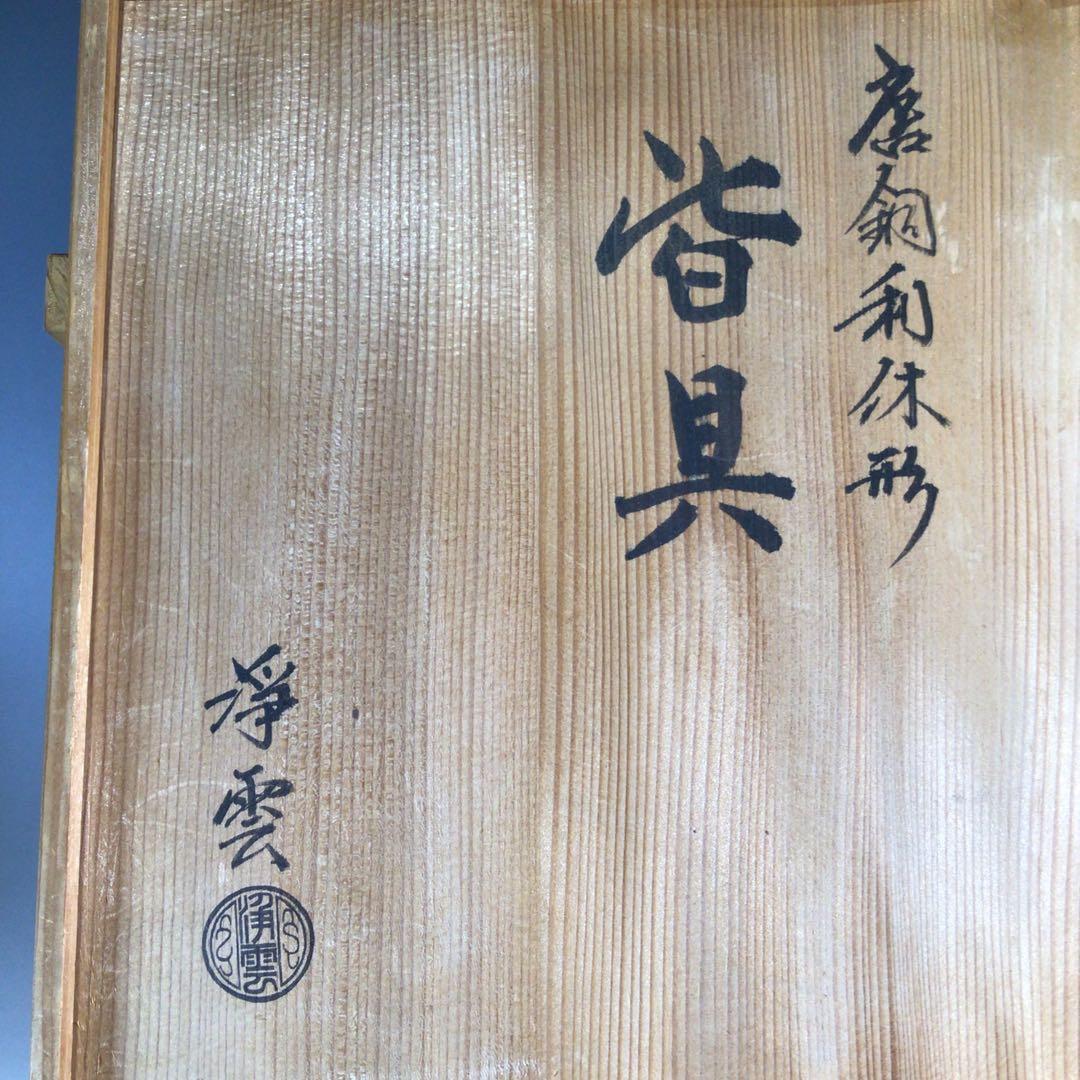 唐銅利休形
皆具
淨雲
淨雲